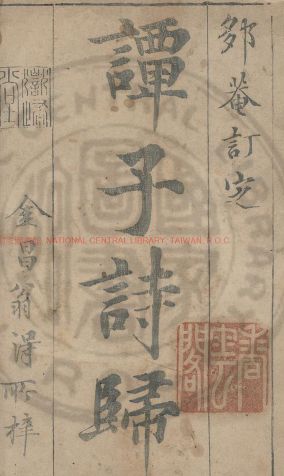 菴訂定
譚子詩歸
金昌翁淂所梓
NATIONAL CENTRAL LIBRARY, TAIWAN, R.O.C